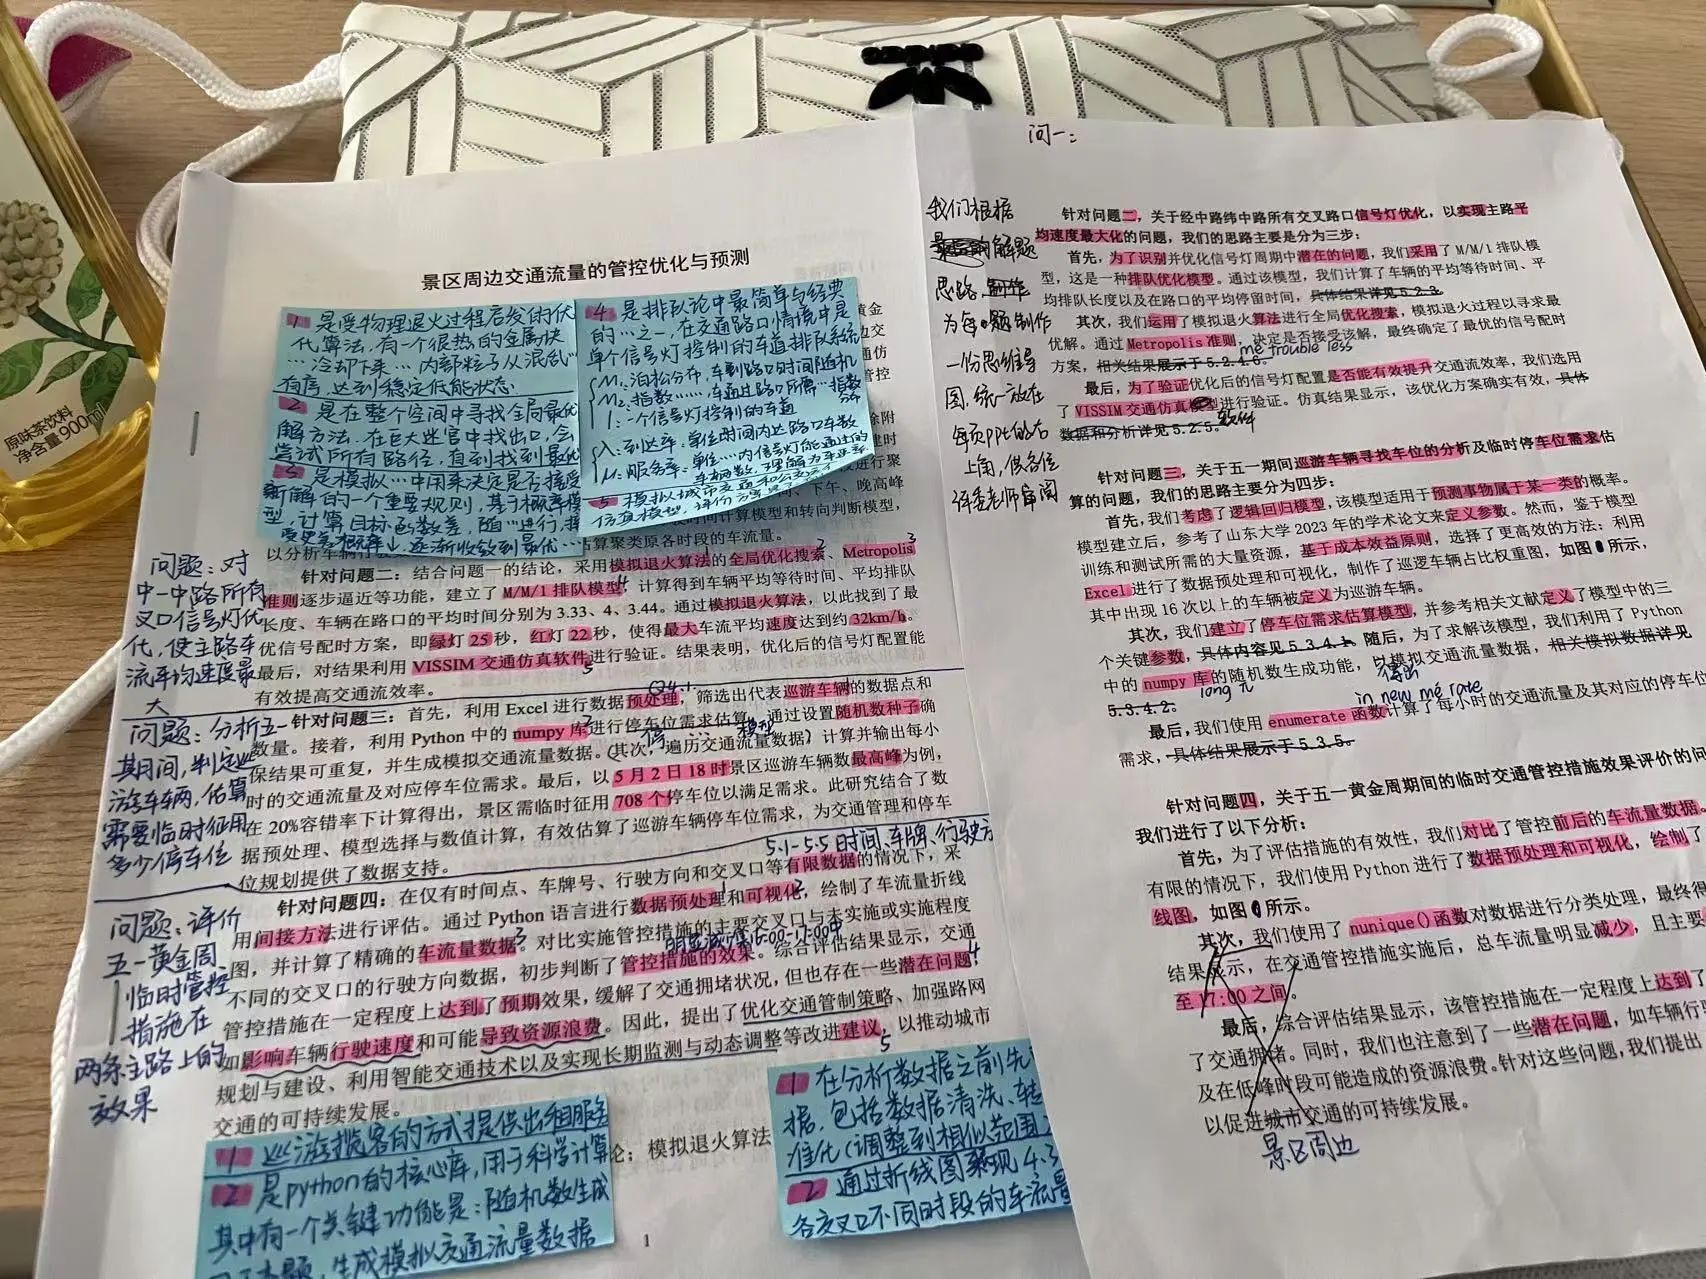 原味茶饮料
净含量900ml
景区周边交通流量的管控优化与预测
1 是受物理退火过程启发的优
化算法,有一个很热的金属块
…冷却下来…内部粒子从混乱
有序,达到稳定低能状态
2 是在整个空间中寻找全局最优
解方法,在巨大迷宫中找出口,会
尝试所有路径,直到找到最优
3 是模拟…中用来决定是否接受
新解的一个重要规则,基于概率模
型,计算目标函数差,随…进行,接
受更差概率↓,逐渐收敛到最优…
4 是排队论中最简单与经典
的…之一,在交通路口情境中是
单个信号灯控制的车道排队系统
M₁:泊松分布,车到路口时间随机
M₂:指数……,车通过路口所需…指数
1:一个信号灯控制的车道
λ:到达率:单位时间内达路口车数
μ:服务率:单位…内信号灯能通过的
5 模拟城市交通和公共交
仿真模型,评价方案
时间计算模型和转向判断模型,
估算聚类原各时段的车流量。
针对问题二:结合问题一的结论,采用模拟退火算法的全局优化搜索、Metropolis
准则逐步逼近等功能,建立了 M/M/1 排队模型,计算得到车辆平均等待时间、平均排队
长度、车辆在路口的平均时间分别为 3.33、4、3.44。通过模拟退火算法,以此找到了最
优信号配时方案,即绿灯 25 秒,红灯 22 秒,使得最大车流平均速度达到约 32km/h。
最后,对结果利用 VISSIM 交通仿真软件进行验证。结果表明,优化后的信号灯配置能
有效提高交通流效率。
问题:对
中一中路所有
叉口信号灯优
化,使主路车
流平均速度最
大
针对问题三:首先,利用 Excel 进行数据预处理,筛选出代表巡游车辆的数据点和
数量。接着,利用 Python 中的 numpy 库进行停车位需求估算,通过设置随机数种子确
保结果可重复,并生成模拟交通流量数据。(其次,遍历交通流量数据)计算并输出每小
时的交通流量及对应停车位需求。最后,以 5 月 2 日 18 时景区巡游车辆数最高峰为例,
在 20%容错率下计算得出,景区需临时征用 708 个停车位以满足需求。此研究结合了数
据预处理、模型选择与数值计算,有效估算了巡游车辆停车位需求,为交通管理和停车
位规划提供了数据支持。
问题:分析五一
其期间,判定巡
游车辆,估算
需要临时征用
多少停车位
5.1-5.5时间、车牌、行驶方
针对问题四:在仅有时间点、车牌号、行驶方向和交叉口等有限数据的情况下,采
用间接方法进行评估。通过 Python 语言进行数据预处理和可视化,绘制了车流量折线
图,并计算了精确的车流量数据。对比实施管控措施的主要交叉口与未实施或实施程度
不同的交叉口的行驶方向数据,初步判断了管控措施的效果。综合评估结果显示,交通
管控措施在一定程度上达到了预期效果,缓解了交通拥堵状况,但也存在一些潜在问题,
如影响车辆行驶速度和可能导致资源浪费。因此,提出了优化交通管制策略、加强路网
规划与建设、利用智能交通技术以及实现长期监测与动态调整等改进建议,以推动城市
交通的可持续发展。
问题:评价
五一黄金周
临时管控
措施在
两条主路上的
效果
论;模拟退火算法
1 巡游揽客的方式提供出租服务
2 是python的核心库,用于科学计算
其中有一个关键功能是:随机数生成
生成模拟交通流量数据
1 在分析数据之前先
据,包括数据清洗、转
准化(调整到相似范围
2 通过折线图
各交叉口不同时段的车流量
1
问一:
我们根据
解题
思路,制作
为每题制作
一份思维导
图,统一放在
每页PPT的右
上角,供各位
评委老师审阅
针对问题二,关于经中路纬中路所有交叉路口信号灯优化,以实现主路平
均速度最大化的问题,我们的思路主要是分为三步:
首先,为了识别并优化信号灯周期中潜在的问题,我们采用了 M/M/1 排队模
型,这是一种排队优化模型。通过该模型,我们计算了车辆的平均等待时间、平
均排队长度以及在路口的平均停留时间,具体结果详见 5.2.3。
其次,我们运用了模拟退火算法进行全局优化搜索,模拟退火过程以寻求最
优解。通过 Metropolis 准则,决定是否接受该解,最终确定了最优的信号配时
方案,相关结果展示于 5.2.4.6。
me trouble less
最后,为了验证优化后的信号灯配置是否能有效提升交通流效率,我们选用
了 VISSIM 交通仿真模型进行验证。仿真结果显示,该优化方案确实有效,具体
数据和分析详见 5.2.5。
软件
针对问题三,关于五一期间巡游车辆寻找车位的分析及临时停车位需求估
算的问题,我们的思路主要分为四步:
首先,我们考虑了逻辑回归模型,该模型适用于预测事物属于某一类的概率。
模型建立后,参考了山东大学 2023 年的学术论文来定义参数。然而,鉴于模型
训练和测试所需的大量资源,基于成本效益原则,选择了更高效的方法:利用
Excel 进行了数据预处理和可视化,制作了巡逻车辆占比权重图,如图所示,
其中出现 16 次以上的车辆被定义为巡游车辆。
其次,我们建立了停车位需求估算模型,并参考相关文献定义了模型中的三
个关键参数,具体内容见 5.3.4.1 随后,为了求解该模型,我们利用了 Python
中的 numpy 库的随机数生成功能,以模拟交通流量数据,相关模拟数据详见
5.3.4.2。
得出
in new me rate
最后,我们使用 enumerate 函数计算了每小时的交通流量及其对应的停车位
需求,具体结果展示于 5.3.5。
针对问题四,关于五一黄金周期间的临时交通管控措施效果评价的问
我们进行了以下分析:
首先,为了评估措施的有效性,我们对比了管控前后的车流量数据。
有限的情况下,我们使用 Python 进行了数据预处理和可视化,绘制了
线图,如图所示。
其次,我们使用了 nunique()函数对数据进行分类处理,最终得
结果显示,在交通管控措施实施后,总车流量明显减少,且主要
至 17:00 之间。
最后,综合评估结果显示,该管控措施在一定程度上达到了
了交通拥堵。同时,我们也注意到了一些潜在问题,如车辆行驶
及在低峰时段可能造成的资源浪费。针对这些问题,我们提出
以促进城市交通的可持续发展。
景区周边